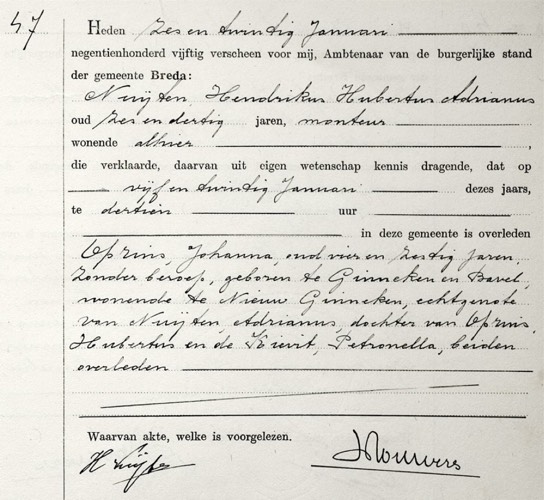 47
Heden zes en twintig Januari
negentienhonderd vijftig verscheen voor mij, Ambtenaar van de burgerlijke stand
der gemeente Breda:
Nuijten, Hendrikus Hubertus Adrianus
oud zes en dertig jaren, monteur
wonende alhier,
die verklaarde, daarvan uit eigen wetenschap kennis dragende, dat op
vijf en twintig Januari dezes jaars,
te dertien uur
in deze gemeente is overleden
Oprins, Johanna, oud vier en zestig jaren
zonder beroep, geboren te Ginneken en Bavel,
wonende te Nieuw Ginneken, echtgenote
van Nuijten, Adrianus, dochter van Oprins,
Hubertus en de Kievit, Petronella, beiden
overleden
Waarvan akte, welke is voorgelezen.
H Nuijten